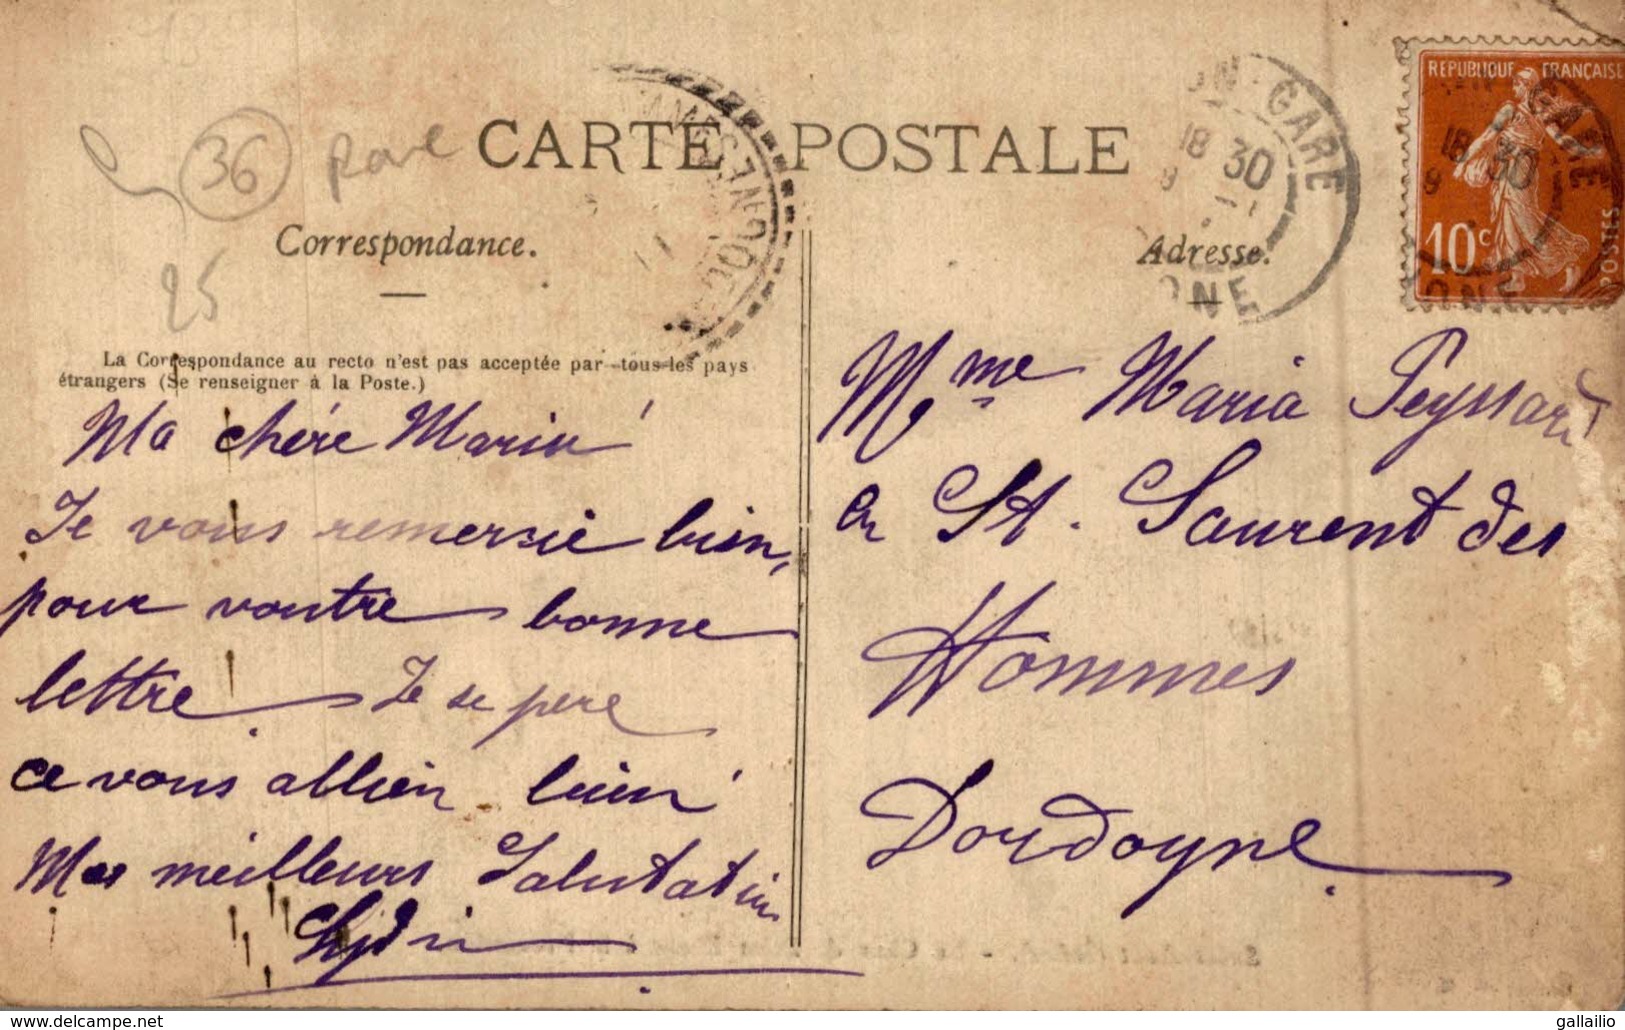 36 Rare
25
CARTE POSTALE
Correspondance.
La Correspondance au recto n'est pas acceptée par tous les pays
étrangers (Se renseigner à la Poste.)
Ma chére Maria
Je vous remersie bien,
pour voutre bonne
lettre Je se pere
ce vous allien bien
Mes meilleurs Salutation
Adresse.
GARE
18 30
RÉPUBLIQUE FRANÇAISE
10c
POSTES
Mme Maria Peyssard
en St. Laurent des
Hommes
Dordogne
delcampe.net
gallailio